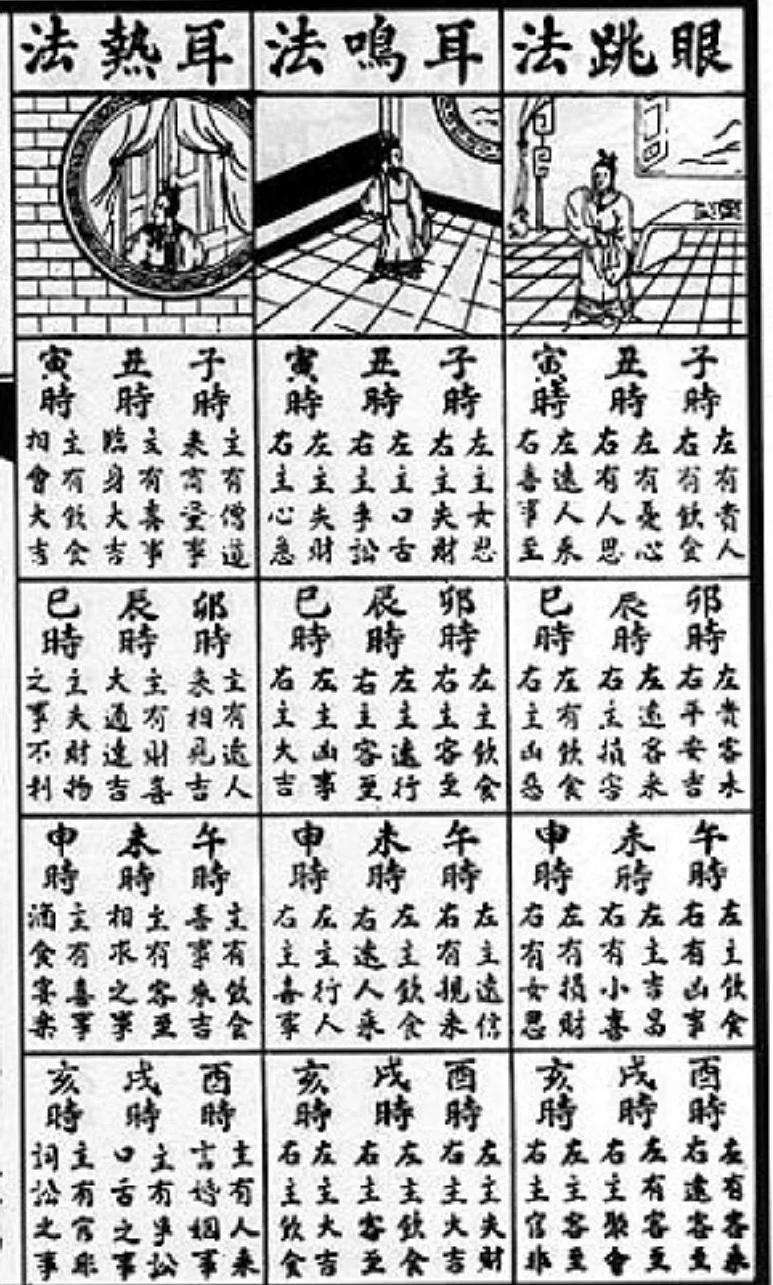 眼跳法
子時
左有貴人
右有飲食
丑時
左有憂心
右有人思
寅時
左遠人來
右喜事至
卯時
左貴客水
右平安吉
辰時
左遠客來
右主損害
巳時
左有飲食
右主凶惡
午時
左主飲食
右有凶事
未時
左主吉昌
右有小喜
申時
左有損財
右有女思
酉時
左有客來
右遠客至
戌時
左有客至
右主聚會
亥時
左主客至
右主官非
耳鳴法
子時
左主女思
右主失財
丑時
左主口舌
右主爭訟
寅時
左主失財
右主心急
卯時
左主飲食
右主客至
辰時
左主遠行
右主客至
巳時
左主凶事
右主大吉
午時
左主遠信
右有親來
未時
左主飲食
右遠人來
申時
左主行人
右主喜事
酉時
左主失財
右主大吉
戌時
左主飲食
右主客至
亥時
左主大吉
右主飲食
耳熱法
子時
主有僧道
來商量事
丑時
主有喜事
臨身大吉
寅時
主有飲食
相會大吉
卯時
主有遠人
來相見吉
辰時
主有財喜
大通達吉
巳時
主失財物
之事不利
午時
主有飲食
喜事來吉
未時
主有客至
相求之事
申時
主有喜事
酒食宴樂
酉時
主有人來
言婚姻事
戌時
主有爭訟
口舌之事
亥時
主有官非
詞訟之事